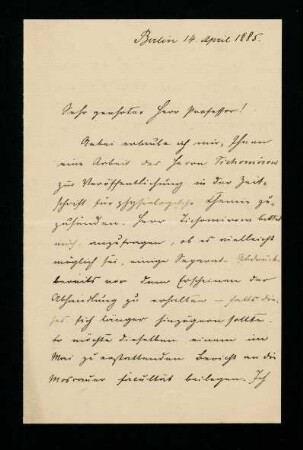 Berlin 14 April 1885.
Sehr geehrter Herr Professor!
Anbei erlaube ich mir, Ihnen
eine Arbeit des Herrn Tichomirow
zur Veröffentlichung in der Zeit-
schrift für physiologische Chemie zu-
zusenden. Herr Tichomirow bittet
mich, anzufragen, ob es vielleicht
möglich sei, einige Separat-Abdrücke
bereits vor dem Erscheinen der
Abhandlung zu erhalten – falls die-
ses sich länger hinzögern sollte.
Er möchte dieselben einem im
Mai zu erstattenden Bericht an die
Moskauer Facultät beilegen. Ich